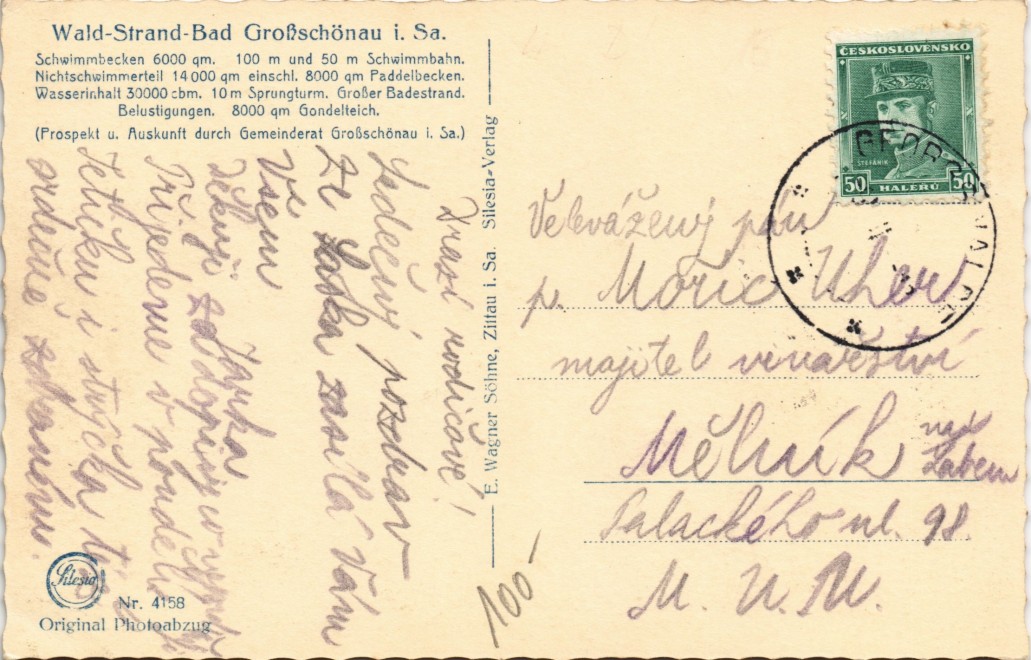 Wald-Strand-Bad Großschönau i. Sa.
Schwimmbecken 6000 qm. 100 m und 50 m Schwimmbahn.
Nichtschwimmerteil 14000 qm einschl. 8000 qm Paddelbecken.
Wasserinhalt 30000 cbm. 10 m Sprungturm. Großer Badestrand.
Belustigungen. 8000 qm Gondelteich.
(Prospekt u. Auskunft durch Gemeinderat Großschönau i. Sa.)
Drazí rodičové!
Srdečný pozdrav
Ze zasílá Vám
Vše
Všem Jarka
Děkuji za dopis
Přijedeme v pondělí
Tetičku i strýčka
srdečně zdravíme.
Silesia
Nr. 4158
Original Photoabzug
E. Wagner Söhne, Zittau i. Sa. Silesia-Verlag
ČESKOSLOVENSKO
ŠTEFÁNIK
50 HALÉŘŮ 50
Velevážený pán
p. Mořic Uher
majitel vinařství
Mělník nad
Labem
Palackého ul. 98.
100-